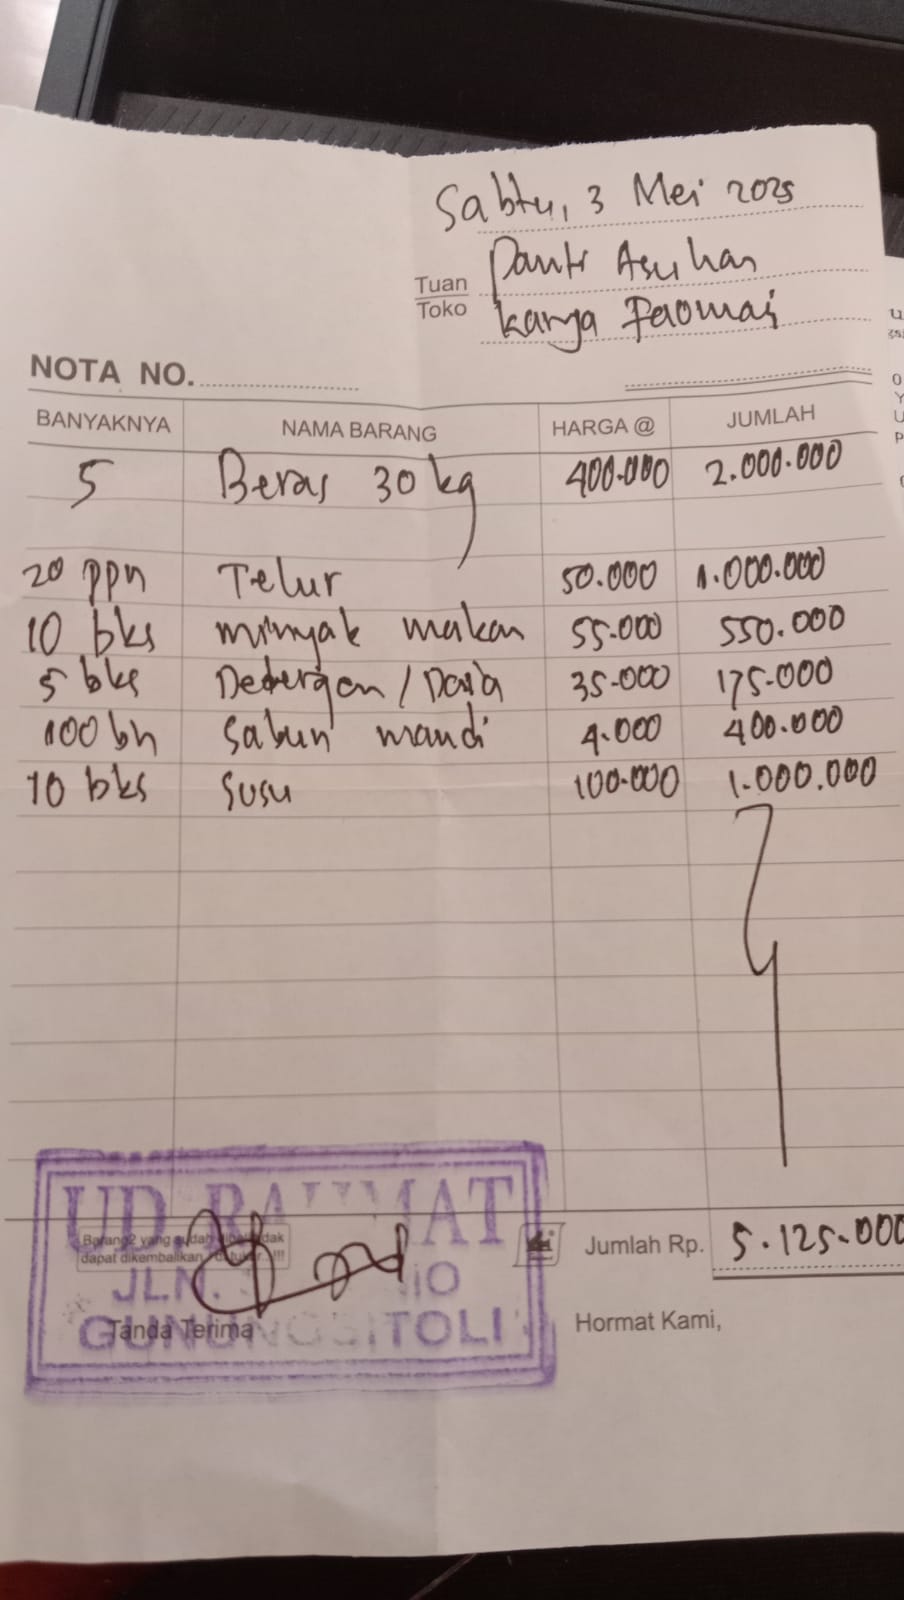 Sabtu, 3 Mei 2025
Tuan Panti Asuhan
Toko Karya Faomasi
NOTA NO.
BANYAKNYA NAMA BARANG HARGA @ JUMLAH
5 Beras 30 kg 400.000 2.000.000
20 ppn Telur 50.000 1.000.000
10 bks minyak makan 55.000 550.000
5 bks Detergen / Daia 35.000 175.000
100 bh Sabun mandi 4.000 400.000
10 bks Susu 100.000 1.000.000
UD. RAHMAT
Barang2 yang sudah dibeli tidak
dapat dikembalikan / ditukar..!!!
Jumlah Rp. 5.125.000
JLN.
GUNUNGSITOLI
Tanda Terima
Hormat Kami,